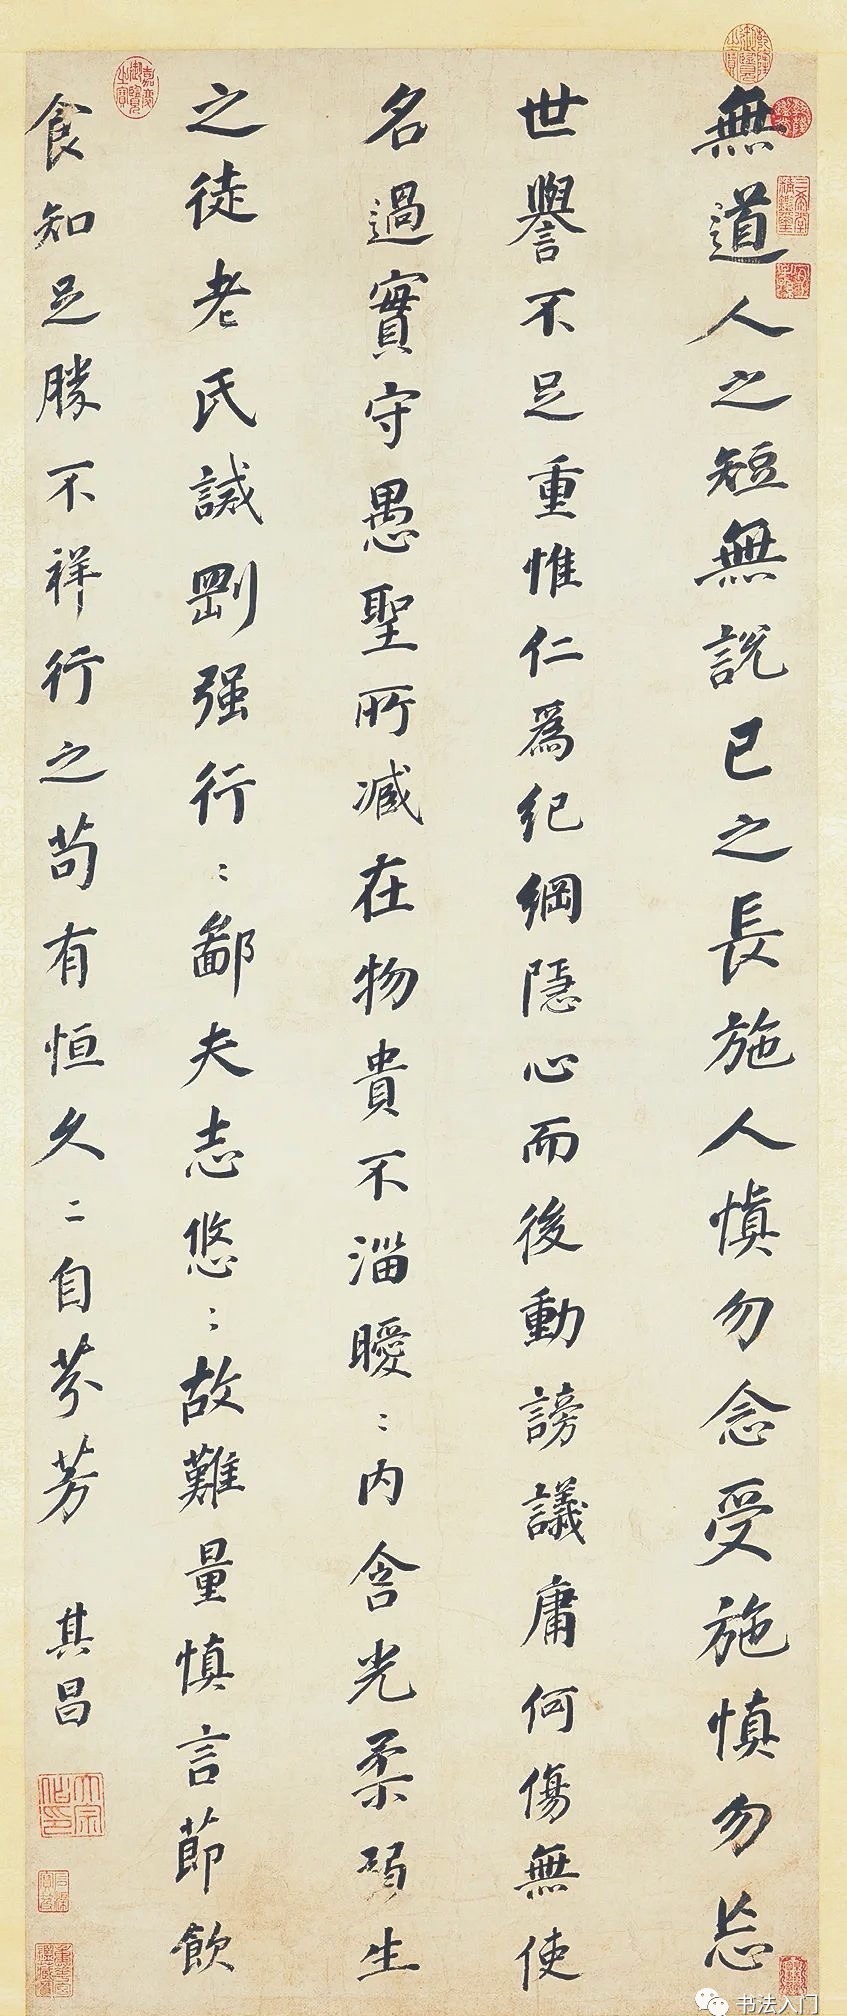 無道人之短無說己之長施人慎勿念受施慎勿忘
世譽不足重惟仁為紀綱隱心而後動謗議庸何傷無使
名過實守愚聖所臧在物貴不淄曖〻內含光柔弱生
之徒老氏誡剛强行〻鄙夫志悠〻故難量慎言節飲
食知足勝不祥行之苟有恒久〻自芬芳
其昌
书法入门